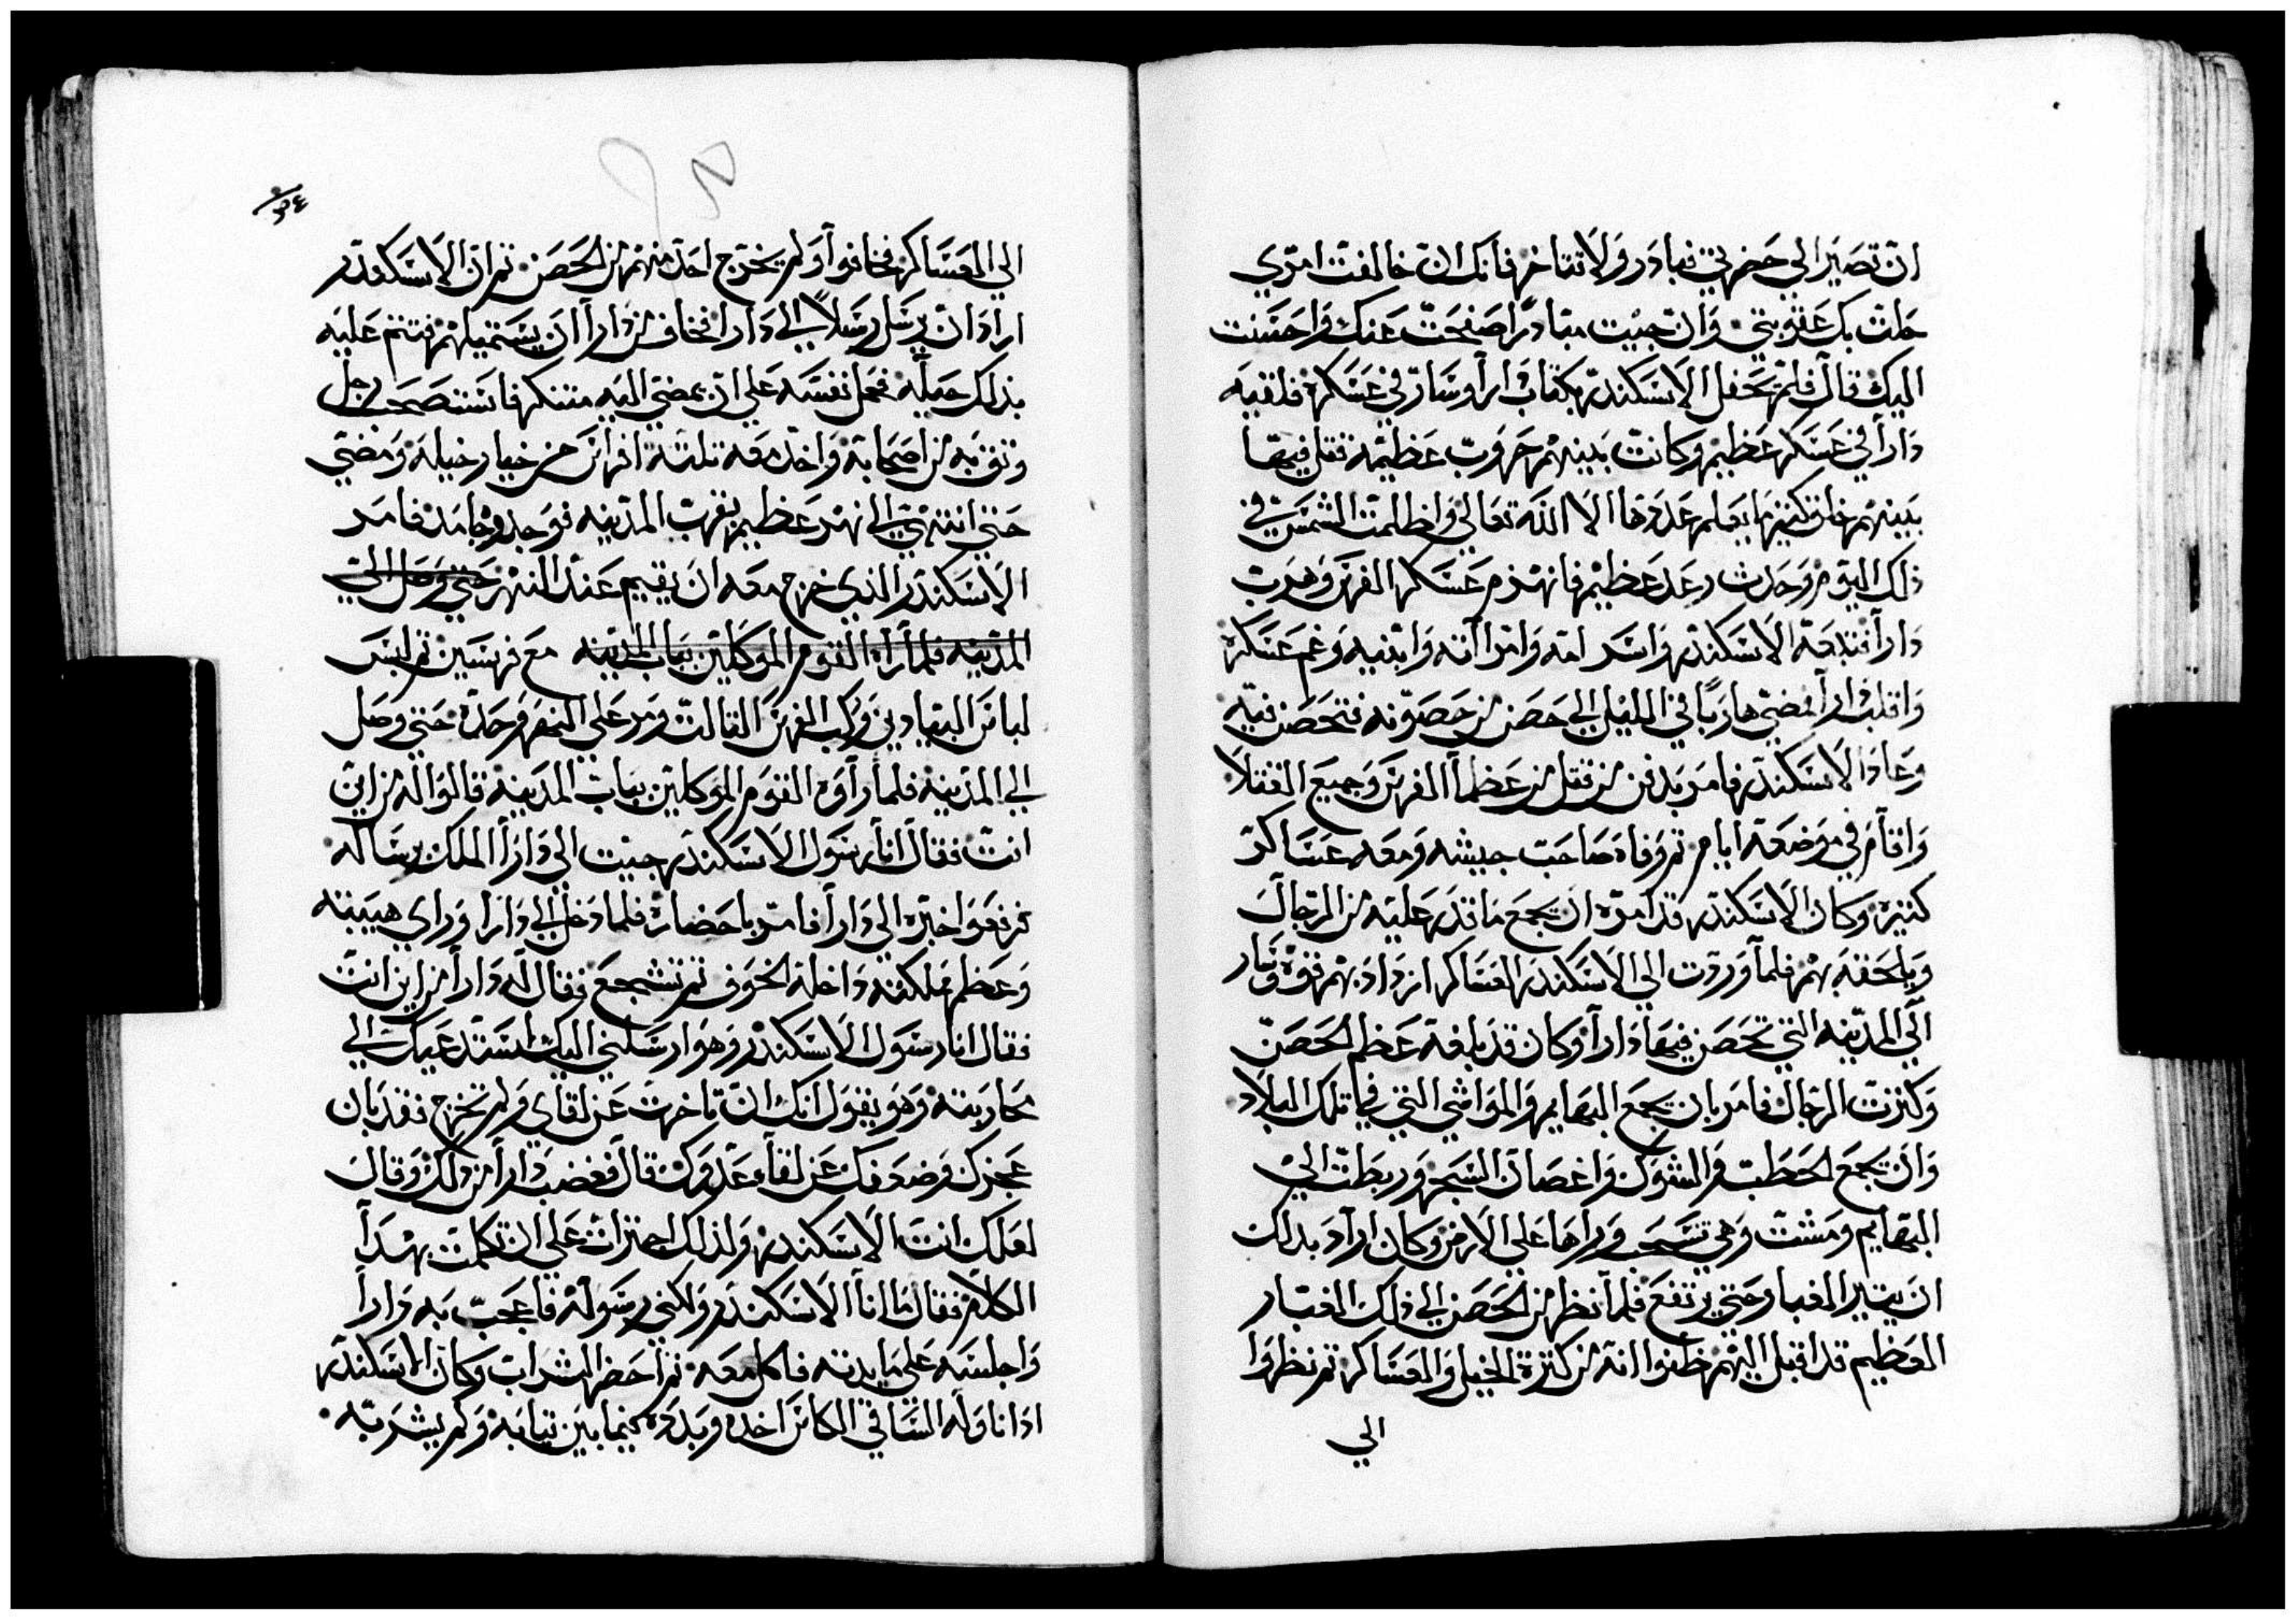 ان تصير الي حضرتي فبادر ولا تتاخر فانك ان خالفت امري
حلت بك عقوبتي وان جيت مبادرا صفحت عنك واحسنت
اليك قال فلم يحفل الاسكندر بكتاب دارا وسار في عسكره فلقيه
دارا في عسكر عظيم وكانت بينهم حروب عظيمة قتل فيها
بينهم خلق كثير ما يعلم عددها الا الله تعالي واظلمت الشمس في
ذلك اليوم وحدث رعد عظيم فانهزم عسكر الفرس وهرب
دارا فتبعه الاسكندر واسر امه وامراته وابنيه وغم عسكره
وافلت دارا فمضي هاربا في الليل الي حصن من حصونه فتحصن فيه
وعاد الاسكندر فامر بدفن من قتل من عظما الفرس وجميع القتلا
واقام في موضعه ايام ثم وفاه صاحب جيشه ومعه عساكر
كثيره وكان الاسكندر قد امره ان يجمع ما قدر عليه من الرجال
ويلحقه بهم فلما وردت الي الاسكندر العساكر ازداد بهم قوة وسار
الي المدينه التي تحصن فيها دارا وكان قد بلغه عظم الحصن
وكثرت الرجال فامر بان يجمع البهايم والمواشي التي في تلك البلاد
وان يجمع الحطب والشوك واغصان الشجر وربطت الي
البهايم ومشت وهي تسحب وراها علي الارض وكان اراد بدلك
ان يثير الغبار حتي يرتفع فلما نظر من الحصن الي ذلك الغبار
العظيم قد اقبل اليهم ظنوا انه من كثرة الخيل والعساكر ثم نظروا
الي
٣٤
الي العساكر فخافوا ولم يخرج احد منهم من الحصن ثم ان الاسكندر
اراد ان يرسل رسلا الي دارا فخاف من دارا ان يستميلهم فتتم عليه
بذلك حيله فحمل نفسه علي ان يمضي اليه متنكر فاستصحب رجل
وثق به من اصحابه واخد معه تلتة افراس من خيار خيله ومضي
حتي انتهي الي نهر عظيم بقرب المدينه فوجدوه جامد فامر
الاسكندر الذي خرج معه ان يقيم عند النهر حتي وصل الي
المدينه فلما راه القوم الموكلين بباب المدينه مع فرسين ثم لبس
لباس البهادين وركب الفرس الثالث ومر علي النهر وحده حتي وصل
الي المدينه فلما راوه القوم الموكلين بباب المدينه قالوا له من اين
انت فقال انا رسول الاسكندر جيت الي دارا الملك برساله
فرفعوا خبره الي دارا فامر باحضاره فلما دخل الي دارا وراي هيبته
وعظم مملكته داخله الخوف ثم تشجع فقال له دارا من اين انت
فقال انا رسول الاسكندر وهو ارسلني اليك يستدعيك الي
محاربته وهو يقول انك ان تاخرت عن لقاي ولم تخرج فقد بان
عجزك وضعفك عن لقا عدوك قال فغضب دارا من ذلك وقال
لعلك انت الاسكندر ولذلك اجترات علي ان تكلمت بهدا
الكلام فقال ما انا الاسكندر ولكني رسوله فاعجب به دارا
واجلسه علي مايدته فاكل معه ثم احضر الشراب وكان الاسكندر
ادا ناوله الساقي الكاس اخده وبدده فيما بين تيابه ولم يشربه